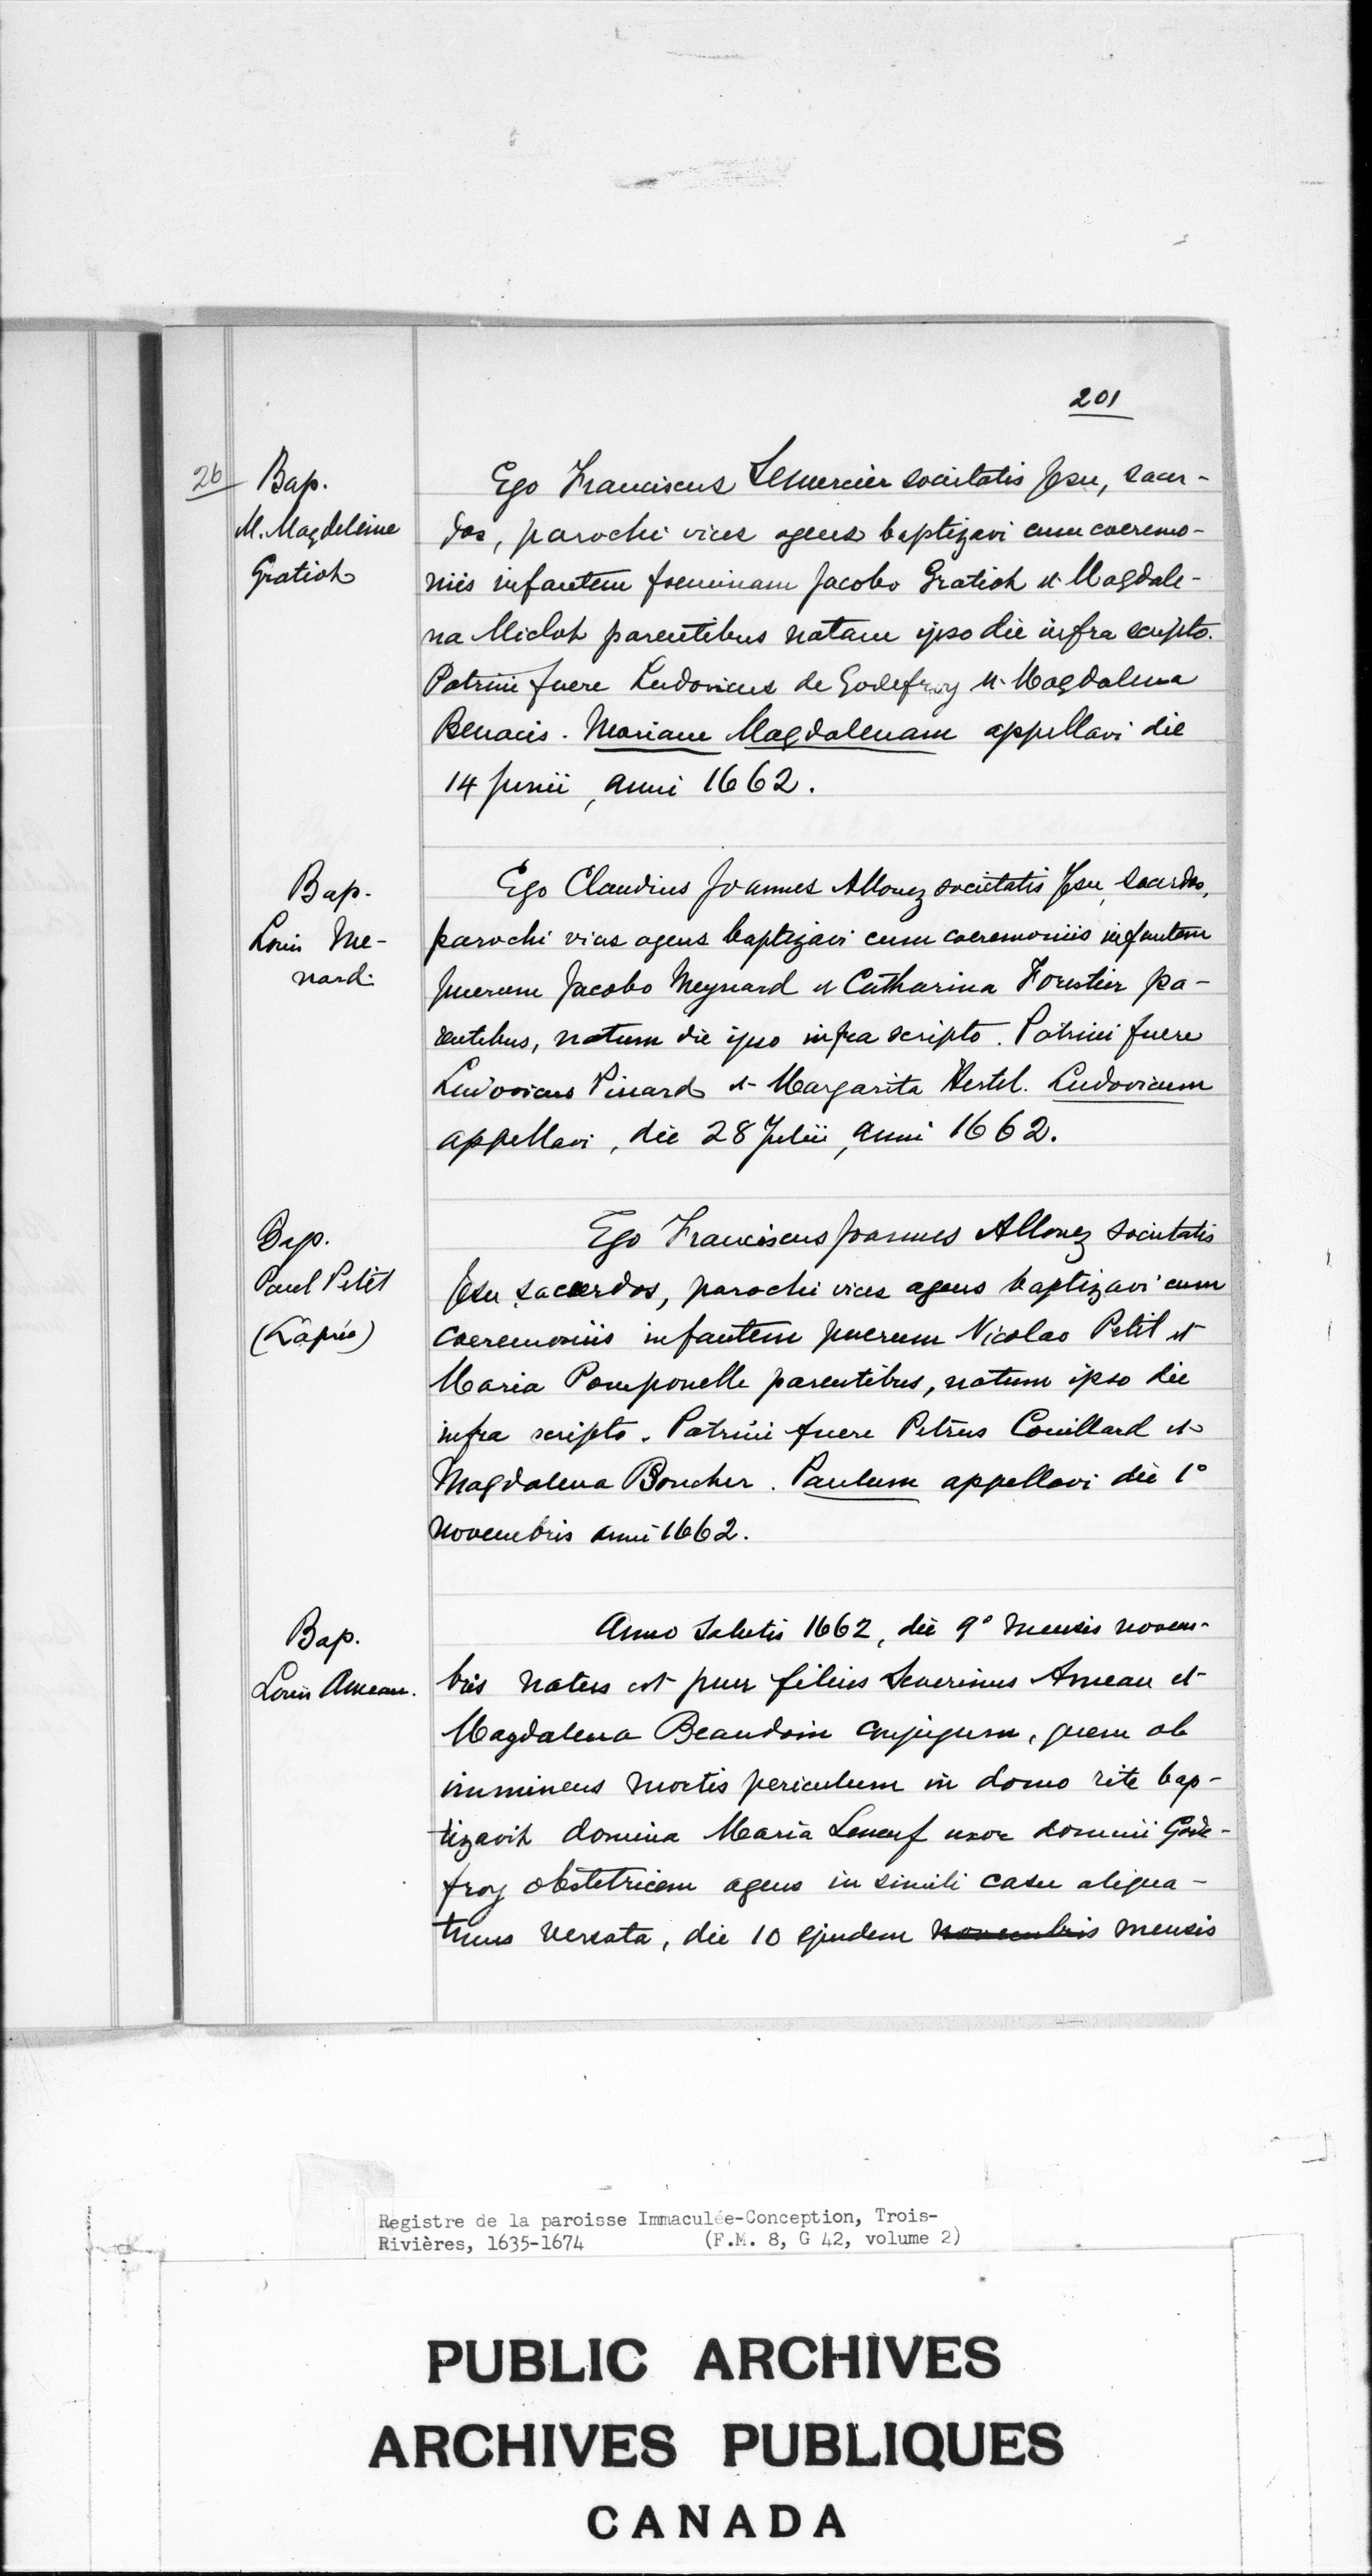 201
26 Bap.
M. Magdeleine
Gratiot
Ego Franciscus Lemercier societatis Jesu, sacer-
dos, parochi vices agens baptizavi cum coeremo-
niis infantem foeminam Jacobo Gratiot et Magdale-
na Miclot parentibus natam ipso die infra scripto.
Patrini fuere Ludovicus de Godefroy et Magdalena
Benacis. Mariam Magdalenam appellavi die
14 Junii, anni 1662.
Bap.
Louis Me-
nard.
Ego Claudius Joannes Allouez societatis Jesu, sacerdos,
parochi vices agens baptizavi cum coeremoniis infantem
puerum Jacobo Meynard et Catharina Forestier pa-
rentibus, natum die ipso infra scripto. Patrini fuere
Ludovicus Pinard et Margarita Hertel. Ludovicum
appellavi, die 28 Julii, anni 1662.
Bap.
Paul Petit
(Laprée)
Ego Franciscus Joannes Allouez societatis
Jesu sacerdos, parochi vices agens baptizavi cum
coeremoniis infantem puerum Nicolao Petit et
Maria Pomponelle parentibus, natum ipso die
infra scripto. Patrini fuere Petrus Couillard et
Magdalena Boucher. Paulum appellavi die 1°
novembris anni 1662.
Bap.
Louis Ameau.
Anno salutis 1662, die 9° mensis novem-
bris natus est puer filius Severinus Ameau et
Magdalena Beaudoin conjugum, quem ob
imminens mortis periculum in domo rite bap-
tizavit domina Maria Leneuf uxor domini Gode-
froy obstetricem agens in simili casu aliqua-
tenus versata, die 10 ejusdem novembris mensis
Registre de la paroisse Immaculée-Conception, Trois-
Rivières, 1635-1674 (F.M. 8, G 42, volume 2)
PUBLIC ARCHIVES
ARCHIVES PUBLIQUES
CANADA